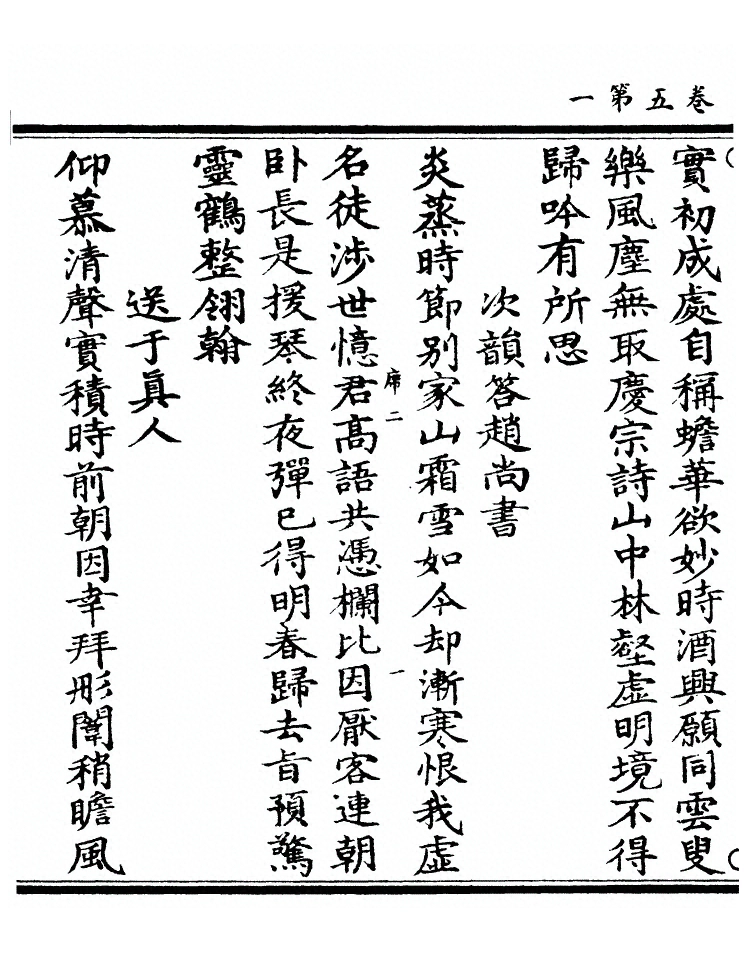 卷五第一
實初成處自稱蟾華欲妙時酒興願同雲叟
樂風塵無取慶宗詩山中林壑虛明境不得
歸吟有所思
次韻答趙尚書
炎蒸時節別家山霜雪如今却漸寒恨我虛
席二
一
名徒涉世憶君高語共憑欄比因厭客連朝
卧長是援琴終夜彈已得明春歸去旨預驚
靈鶴整翎翰
送于眞人
仰慕清聲實積時前朝因幸拜彤闈稍瞻風